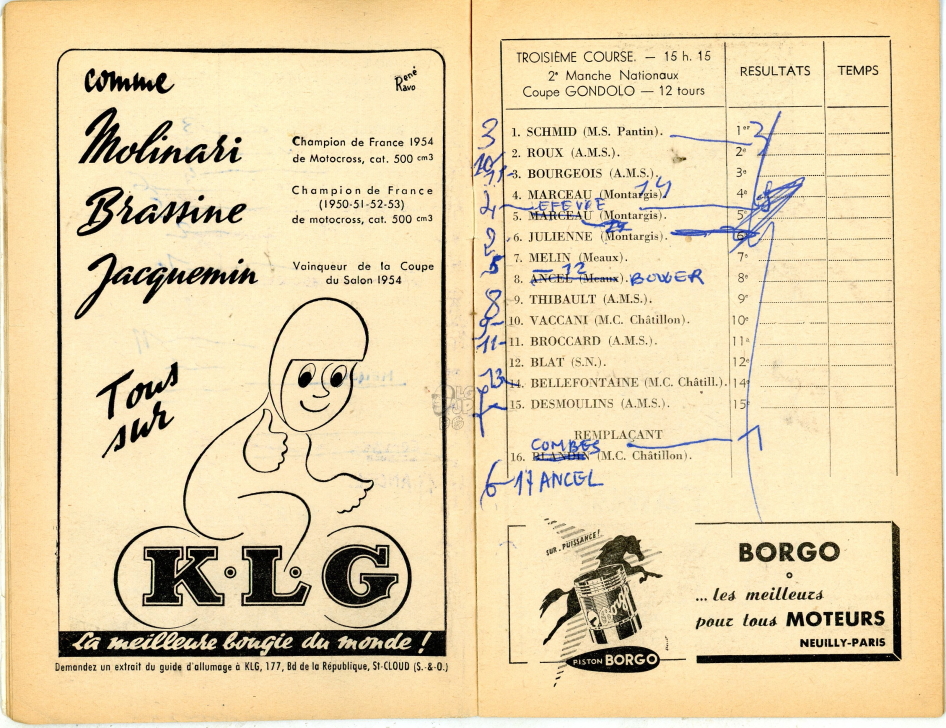 comme
René
Ravo
Molinari
Champion de France 1954
de Motocross, cat. 500 cm3
Brassine
Champion de France
(1950-51-52-53)
de motocross, cat. 500 cm3
Jacquemin
Vainqueur de la Coupe
du Salon 1954
Tous
sur
K·L·G
La meilleure bougie du monde !
Demandez un extrait du guide d'allumage à KLG, 177, Bd de la République, St-CLOUD (S.-&-O.)
TROISIÈME COURSE. — 15 h. 15
2e Manche Nationaux
Coupe GONDOLO — 12 tours
RESULTATS
TEMPS
3 1. SCHMID (M.S. Pantin). 1er 3
2. ROUX (A.M.S.). 2e
3. BOURGEOIS (A.M.S.). 3e
4. MARCEAU (Montargis). 14 4e
LEFEVRE
5. MARCEAU (Montargis). 5e
6. JULIENNE (Montargis). 6e
7. MELIN (Meaux). 7e
5 12
8. ANCEL (Meaux). BOUVER 8e
8 9. THIBAULT (A.M.S.). 9e
9 10. VACCANI (M.C. Châtillon). 10e
11 11. BROCCARD (A.M.S.). 11e
12. BLAT (S.N.). 12e
13 14. BELLEFONTAINE (M.C. Châtill.). 14e
15. DESMOULINS (A.M.S.). 15e
REMPLAÇANT
COMBES 1
16. BLANDIN (M.C. Châtillon).
6 17 ANCEL
SUR-PUISSANCE !
BORGO
PISTON BORGO
BORGO
... les meilleurs
pour tous MOTEURS
NEUILLY-PARIS